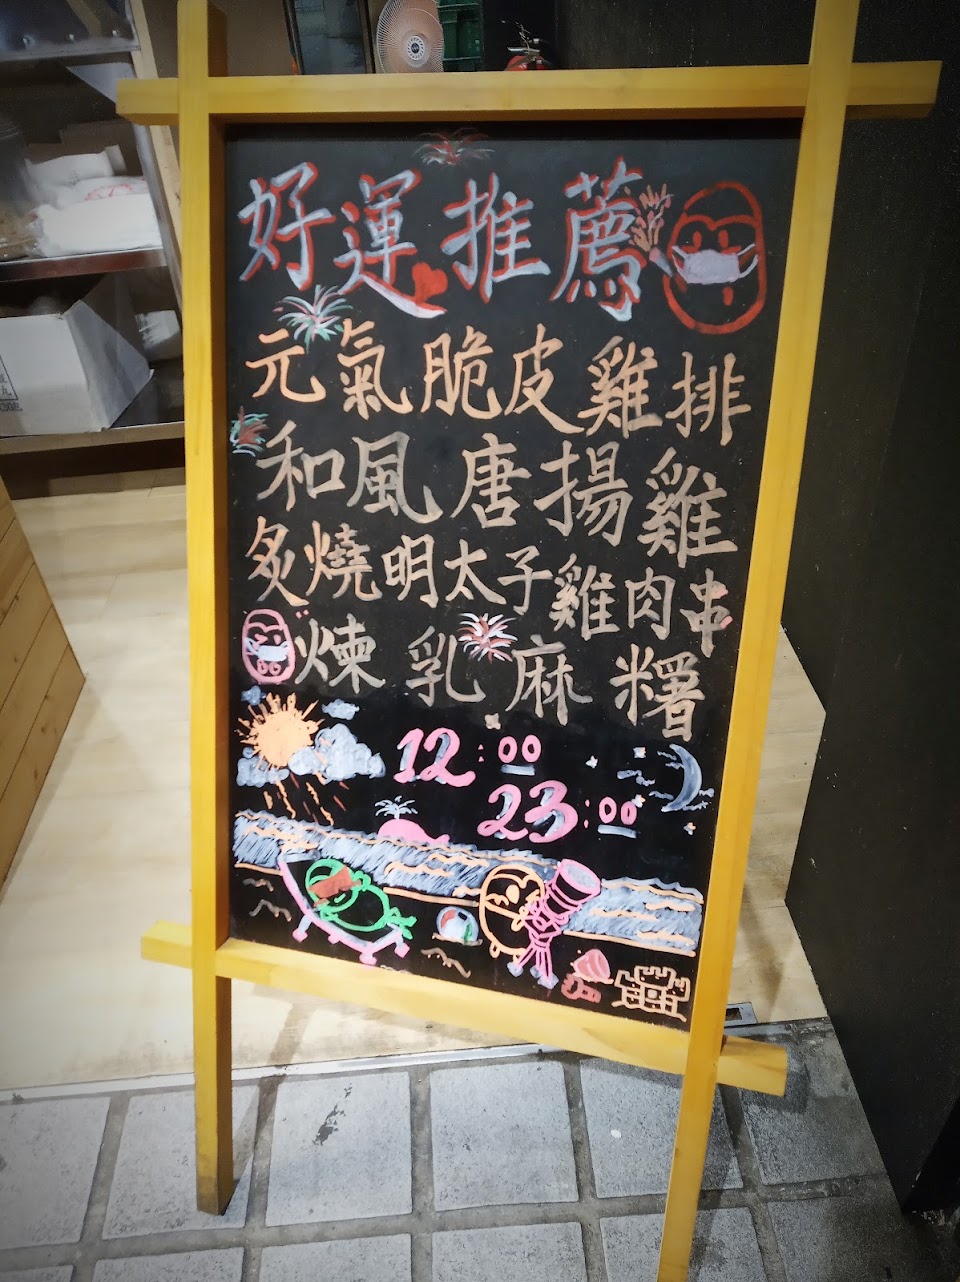 好運推薦
元氣脆皮雞排
和風唐揚雞
炙燒明太子雞肉串
煉乳麻糬
12:00
23:00